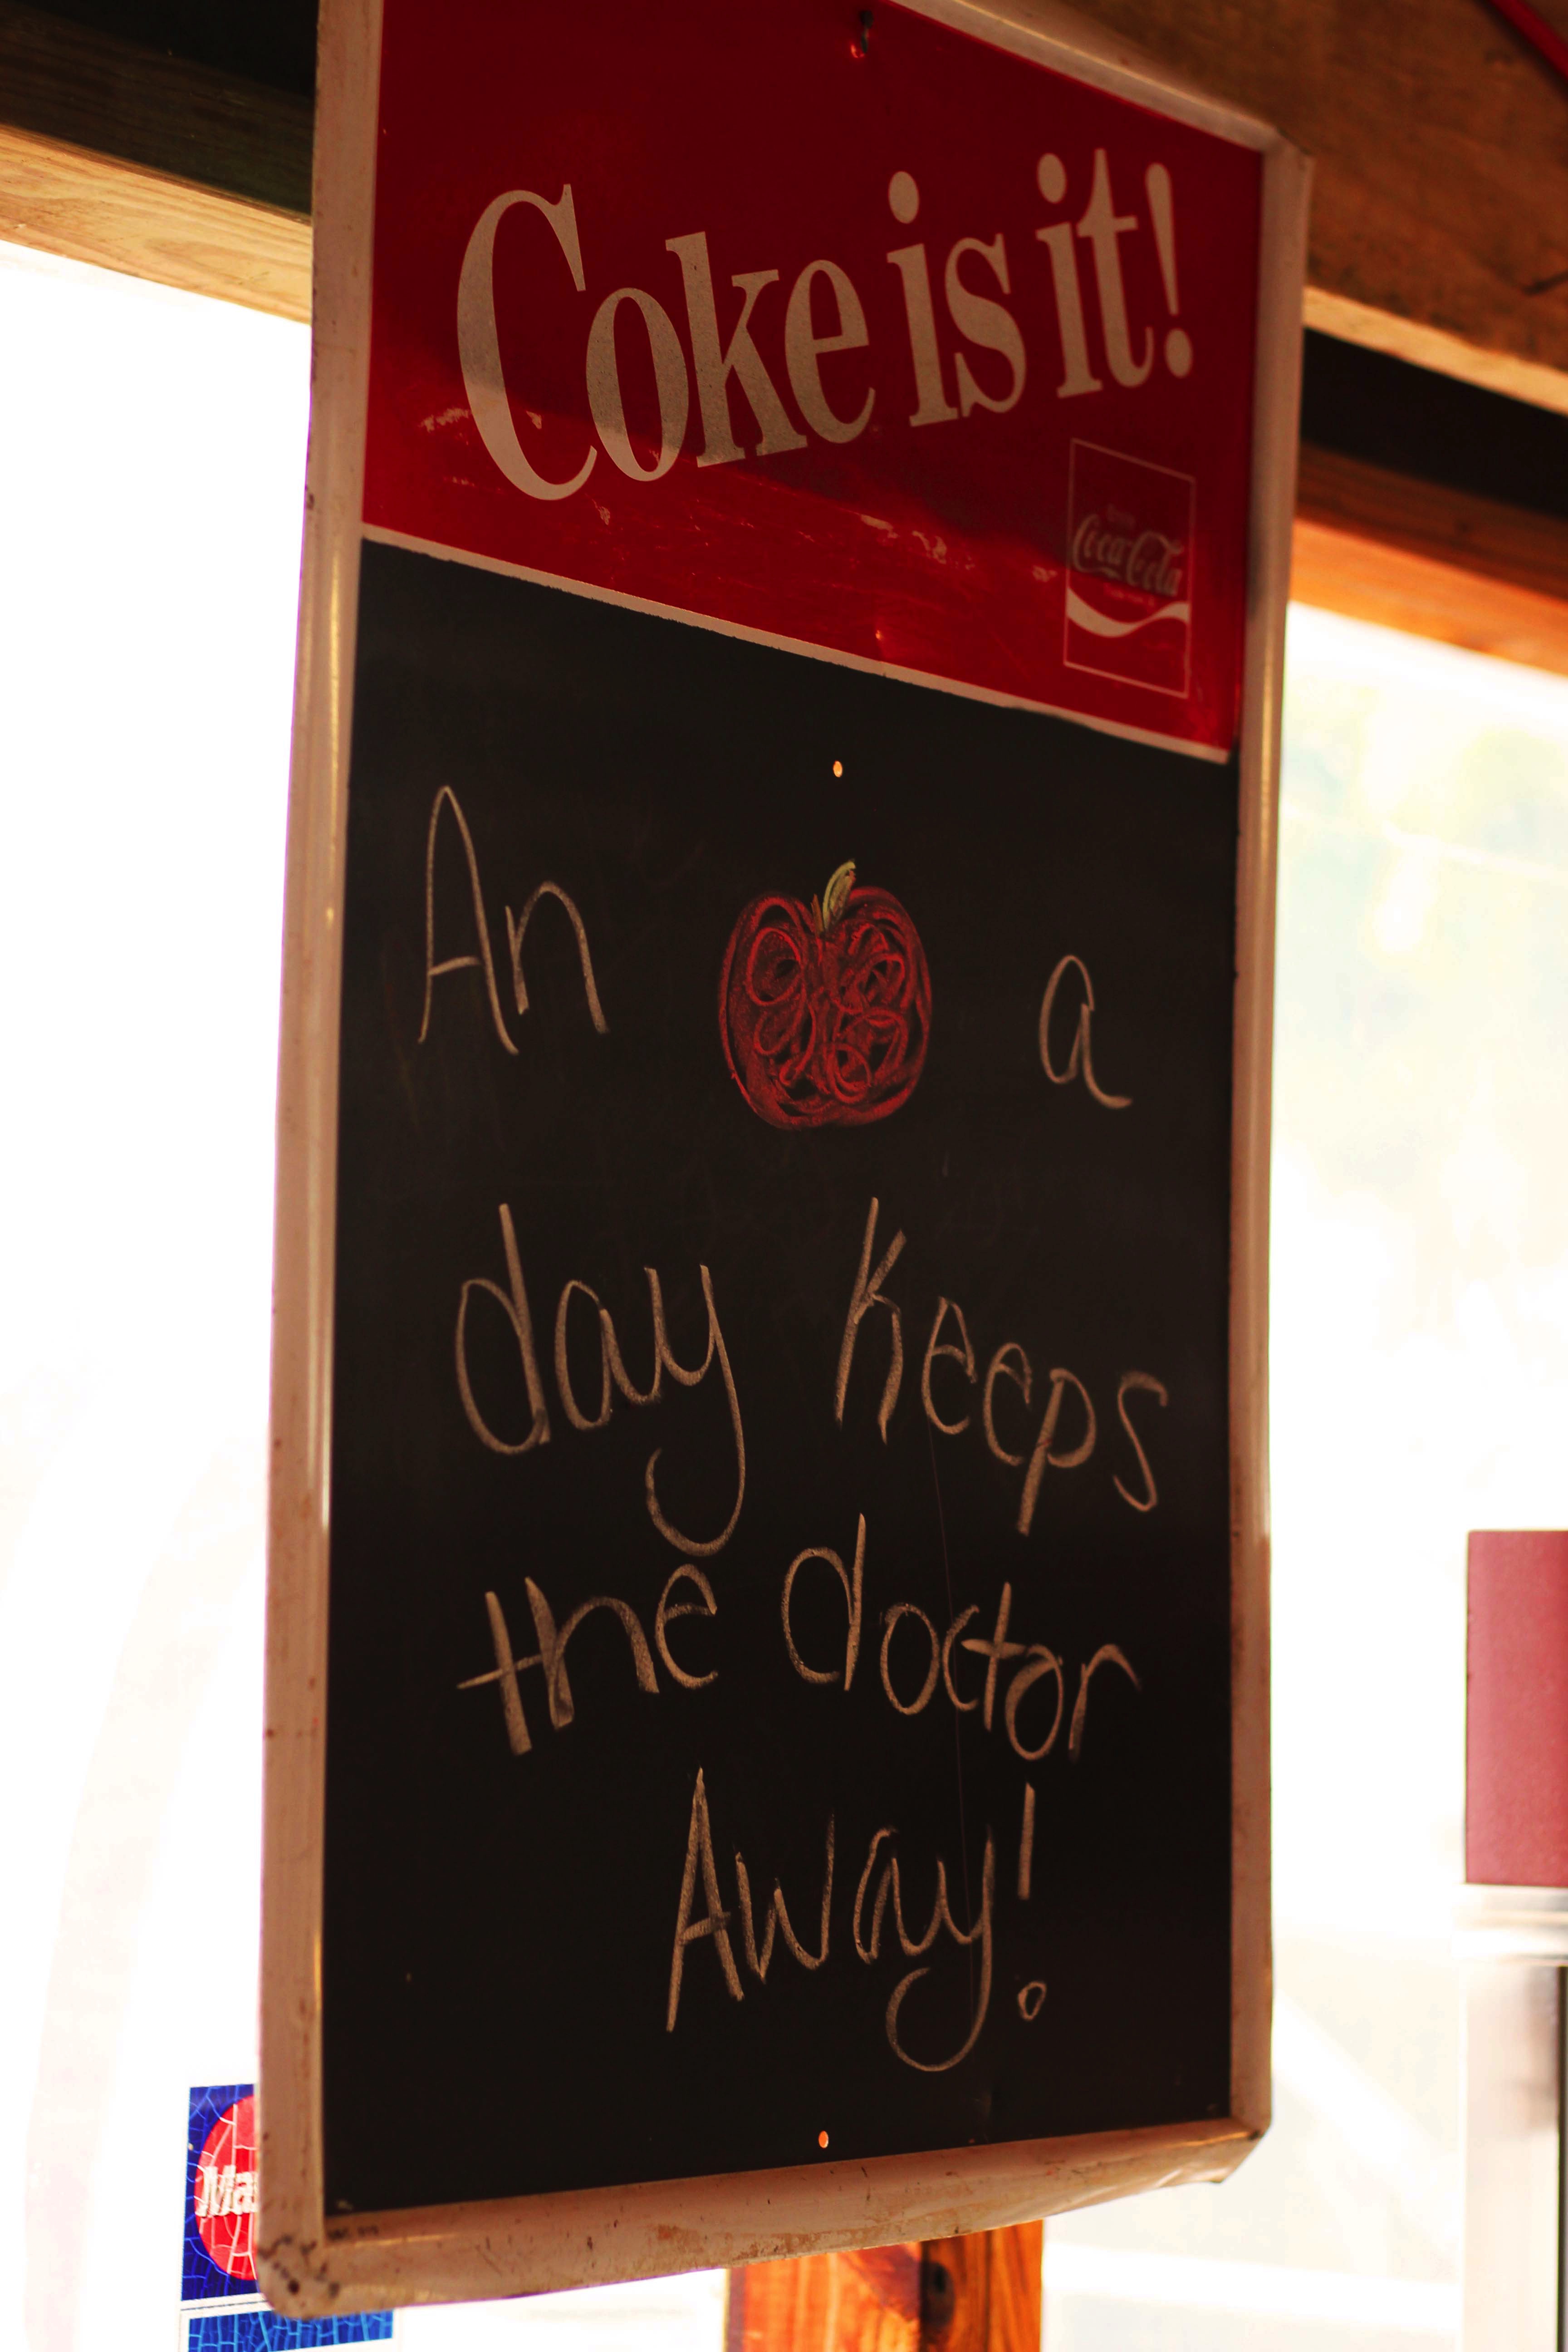 Coke is it!
Enjoy
Coca-Cola
An a
day keeps
the doctor
Away!
Ma